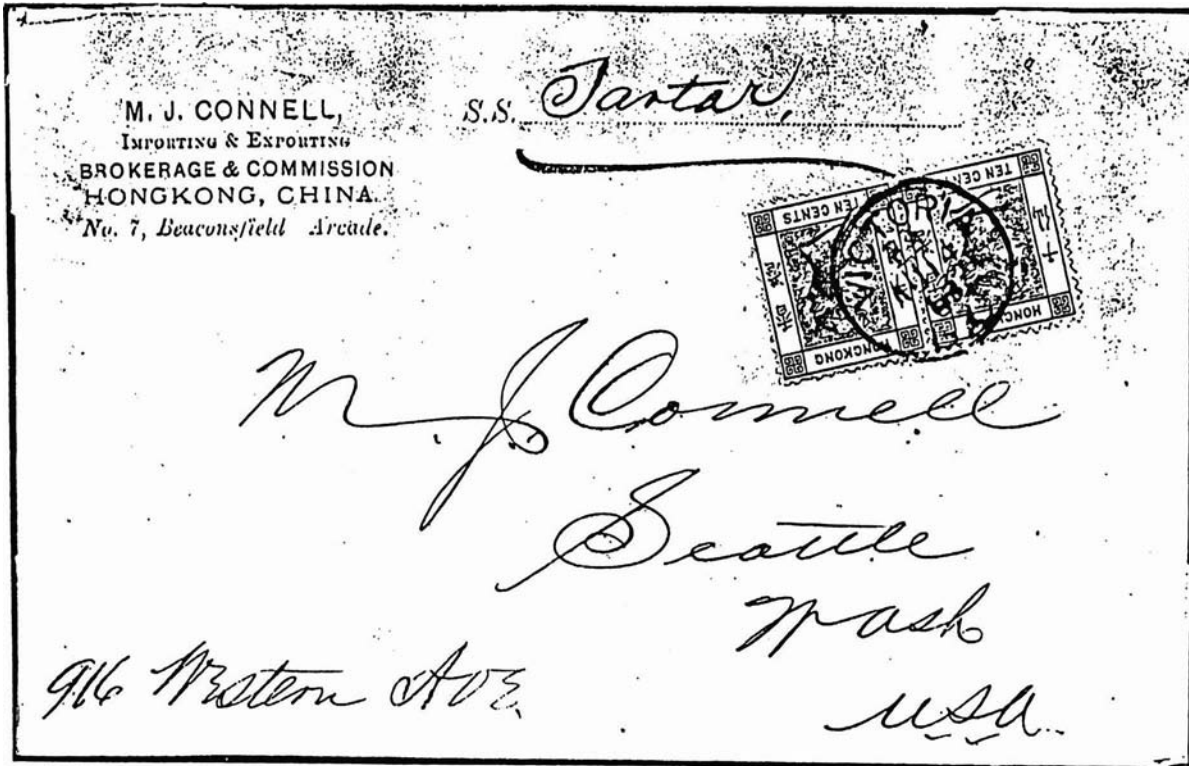 M. J. CONNELL,
IMPORTING & EXPORTING
BROKERAGE & COMMISSION
HONGKONG, CHINA.
No. 7, Beaconsfield Arcade.
S.S. Tartar,
TEN CENTS TEN CEN
VICTORIA
HONGKONG HONGK
M. J. Connell.
Seattle
Wash
USA.
916 Western Ave.